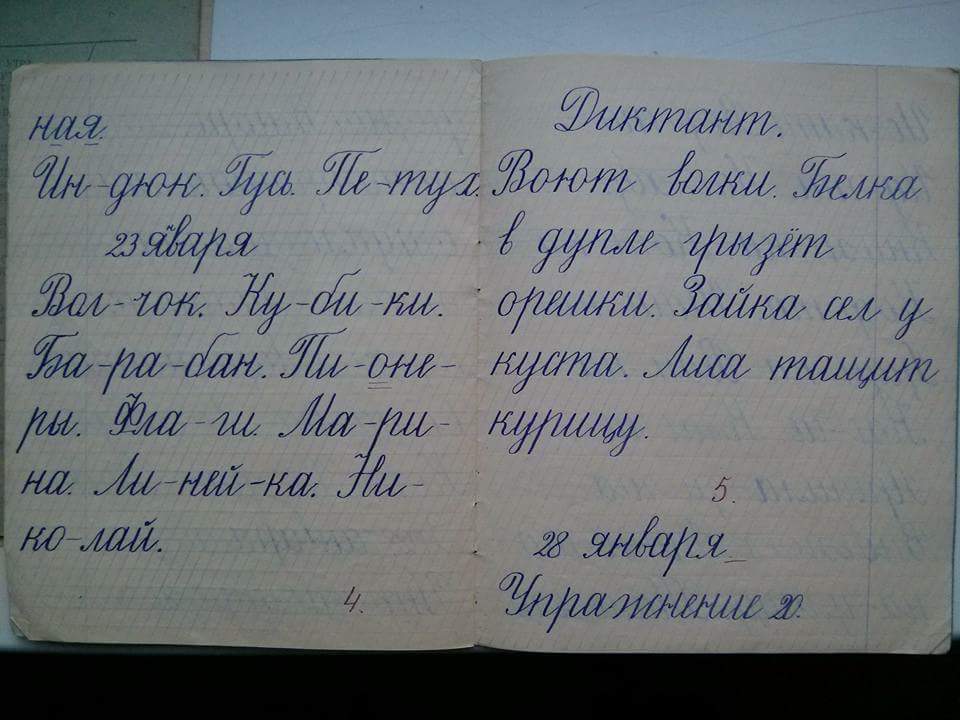 ная.
Ин-дюк. Гусь. Пе-тух.
23 января
Вол-чок. Ку-би-ки.
Ба-ра-бан. Пи-оне-
ры. Фла-ги. Ма-ри-
на. Ли-ней-ка. Ни-
ко-лай.
4.
Диктант.
Воют волки. Белка
в дупле грызёт
орешки. Зайка сел у
куста. Лиса тащит
курицу.
5.
28 января
Упражнение 20.